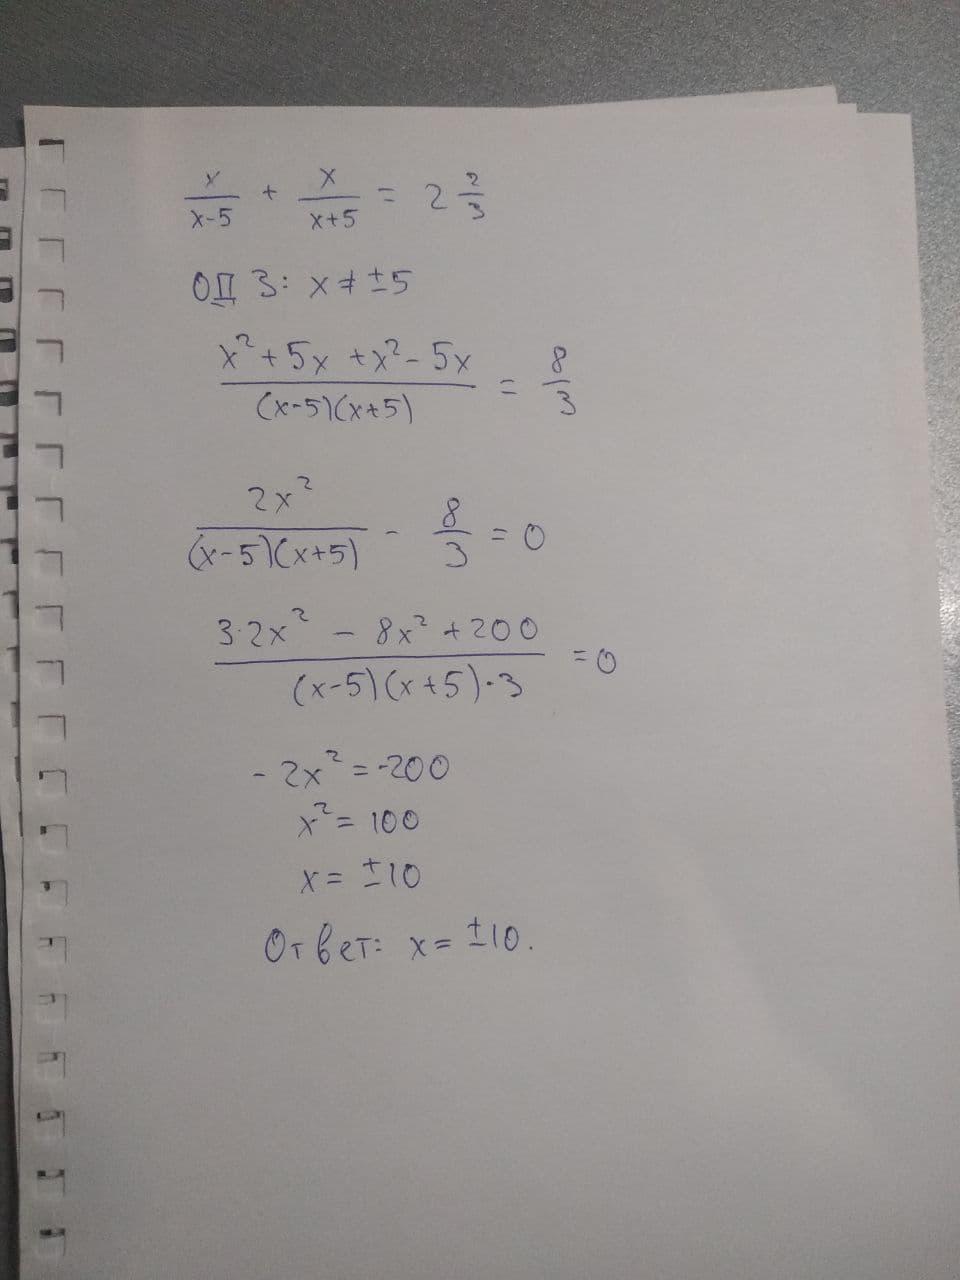 x/(x-5) + x/(x+5) = 2 2/3
ОДЗ: x ≠ ±5
(x² + 5x + x² - 5x)/((x-5)(x+5)) = 8/3
2x²/((x-5)(x+5)) - 8/3 = 0
(3·2x² - 8x² + 200)/((x-5)(x+5)·3) = 0
-2x² = -200
x² = 100
x = ±10
Ответ: x = ±10.